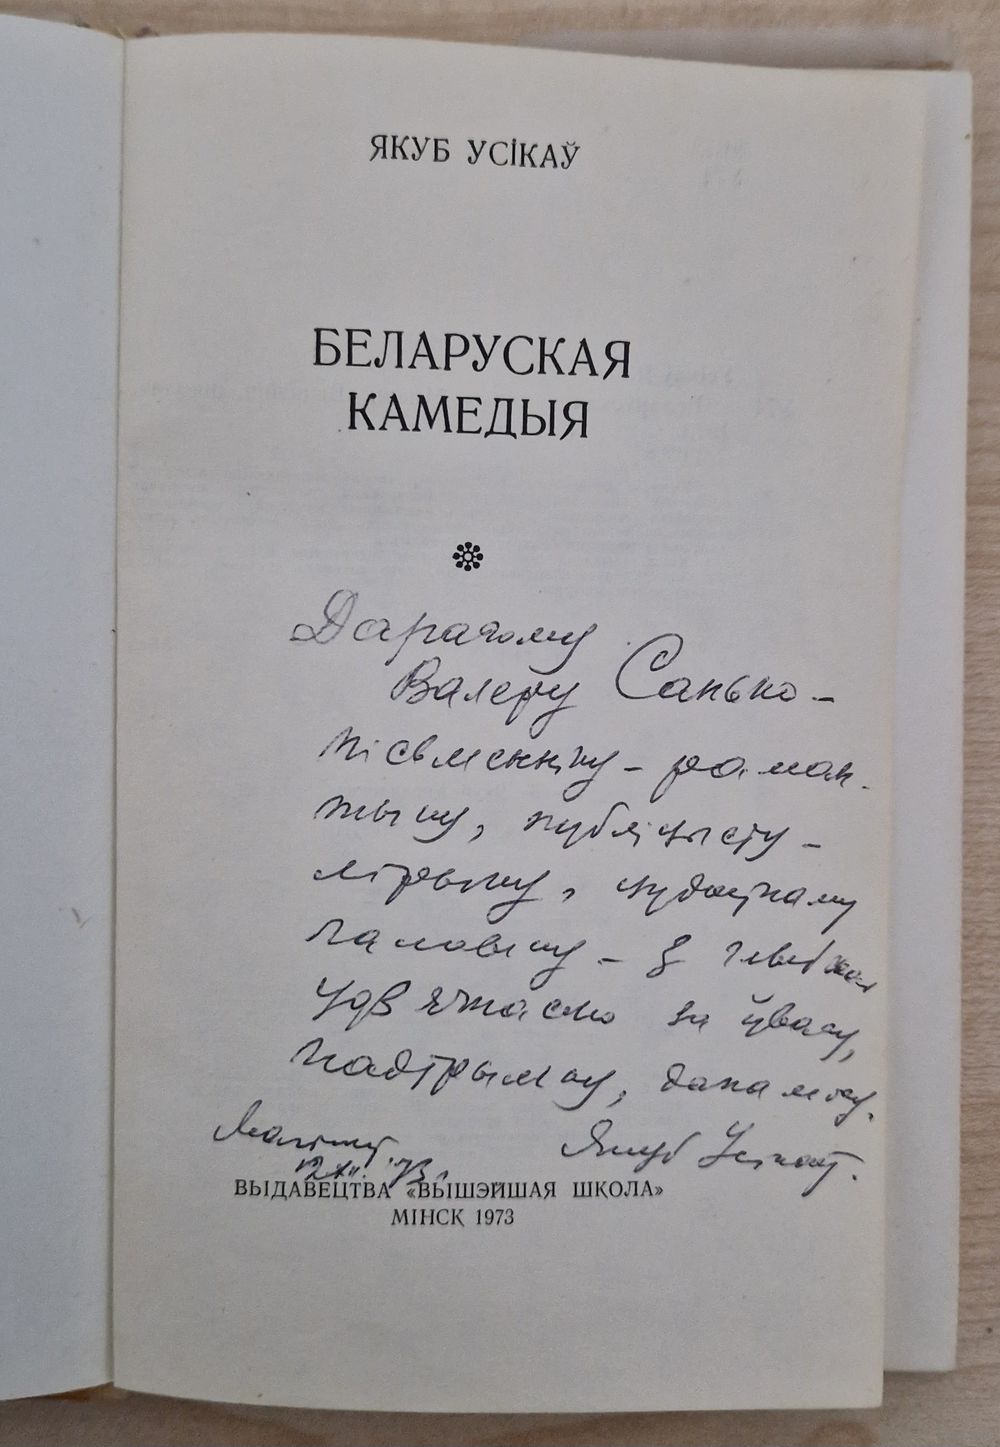 ЯКУБ УСІКАЎ
БЕЛАРУСКАЯ
КАМЕДЫЯ
Дарагому
Валеру Санько –
пісьменніку – роман-
тыку, публіцысту –
лірыку, чудоўнаму
чалавеку – з глыбокай
удзячнасцю за ўвагу,
падтрымку, дапамогу.
Якуб Усікаў.
ВЫДАВЕЦТВА «ВЫШЭЙШАЯ ШКОЛА»
МІНСК 1973